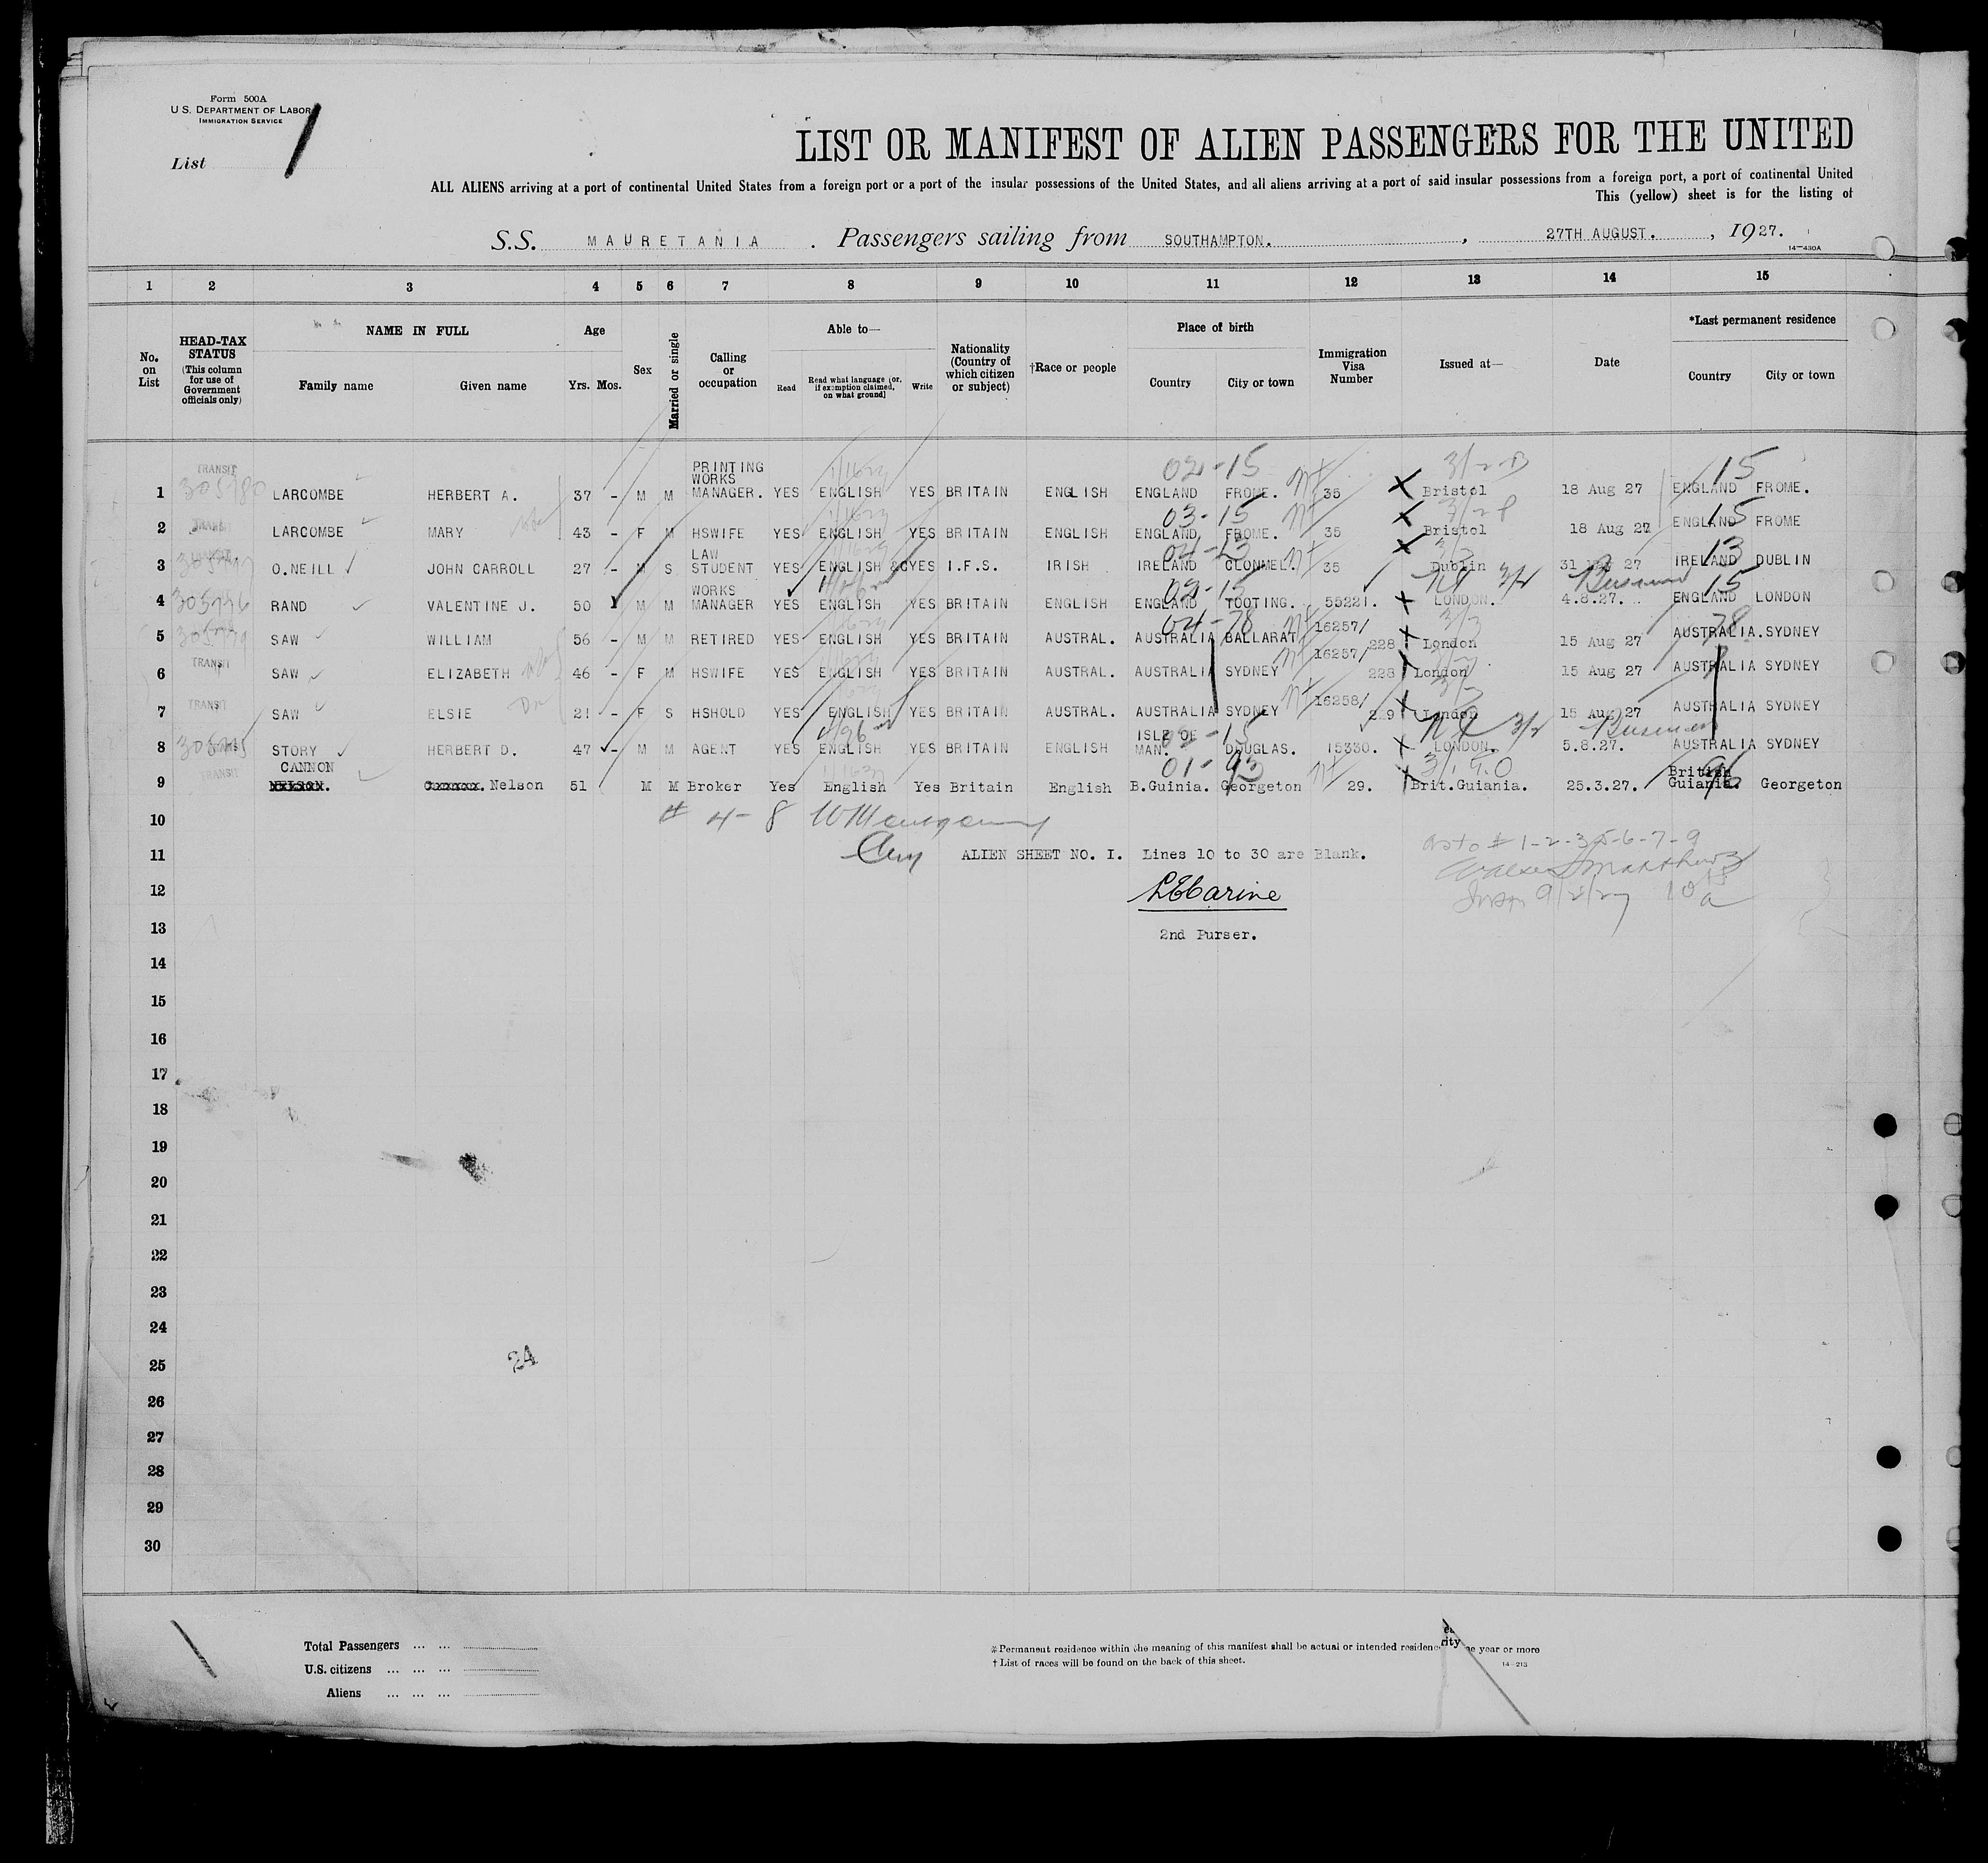 Form 500A
U. S. DEPARTMENT OF LABOR
IMMIGRATION SERVICE
List 1
LIST OR MANIFEST OF ALIEN PASSENGERS FOR THE UNITED
ALL ALIENS arriving at a port of continental United States from a foreign port or a port of the insular possessions of the United States, and all aliens arriving at a port of said insular possessions from a foreign port, a port of continental United
This (yellow) sheet is for the listing of
S.S. MAURETANIA . Passengers sailing from SOUTHAMPTON. , 27TH AUGUST. , 1927.
14—430A
1 2 3 4 5 6 7 8 9 10 11 12 13 14 15
No. on List
HEAD-TAX STATUS (This column for use of Government officials only)
NAME IN FULL
Family name Given name
Age
Yrs. Mos.
Sex
Married or single
Calling or occupation
Able to—
Read Read what language [or, if exemption claimed, on what ground] Write
Nationality (Country of which citizen or subject)
†Race or people
Place of birth
Country City or town
Immigration Visa Number
Issued at—
Date
*Last permanent residence
Country City or town
02-15 15
1 TRANSIT LARCOMBE HERBERT A. 37 - M M PRINTING WORKS MANAGER. YES ENGLISH YES BRITAIN ENGLISH ENGLAND FROME. 35 Bristol 18 Aug 27 ENGLAND FROME.
03-15 15
2 TRANSIT LARCOMBE MARY 43 - F M HSWIFE YES ENGLISH YES BRITAIN ENGLISH ENGLAND FROME. 35 Bristol 18 Aug 27 ENGLAND FROME
04-13 13
3 TRANSIT O.NEILL JOHN CARROLL 27 - M S LAW STUDENT YES ENGLISH &C YES I.F.S. IRISH IRELAND CLONMEL. 35 Dublin 31 27 IRELAND DUBLIN
02-15 15
4 RAND VALENTINE J. 50 M M WORKS MANAGER YES ENGLISH YES BRITAIN ENGLISH ENGLAND TOOTING. 55221. LONDON. 4.8.27. ENGLAND LONDON
04-78 78
5 SAW WILLIAM 56 - M M RETIRED YES ENGLISH YES BRITAIN AUSTRAL. AUSTRALIA BALLARAT 16257/228 London 15 Aug 27 AUSTRALIA. SYDNEY
6 TRANSIT SAW ELIZABETH 46 - F M HSWIFE YES ENGLISH YES BRITAIN AUSTRAL. AUSTRALIA SYDNEY 16257/228 London 15 Aug 27 AUSTRALIA SYDNEY
7 TRANSIT SAW ELSIE 21 - F S HSHOLD YES ENGLISH YES BRITAIN AUSTRAL. AUSTRALIA SYDNEY 16258/229 London 15 Aug 27 AUSTRALIA SYDNEY
8 STORY HERBERT D. 47 - M M AGENT YES ENGLISH YES BRITAIN ENGLISH ISLE OF MAN. DOUGLAS. 15330. LONDON. 5.8.27. AUSTRALIA SYDNEY
9 TRANSIT CANNON Nelson 51 M M Broker Yes English Yes Britain English B.Guinia. Georgeton 29. Brit.Guiania. 25.3.27. British Guiania. Georgeton
10 # 4-8
11 ALIEN SHEET NO. I. Lines 10 to 30 are Blank. as to # 1-2-3-5-6-7-9
12
13 2nd Purser.
14
15
16
17
18
19
20
21
22
23
24
25 24
26
27
28
29
30
Total Passengers ... ...
U.S. citizens ... ... ...
Aliens ... ... ...
*Permanent residence within the meaning of this manifest shall be actual or intended residence year or more
† List of races will be found on the back of this sheet.
14—213